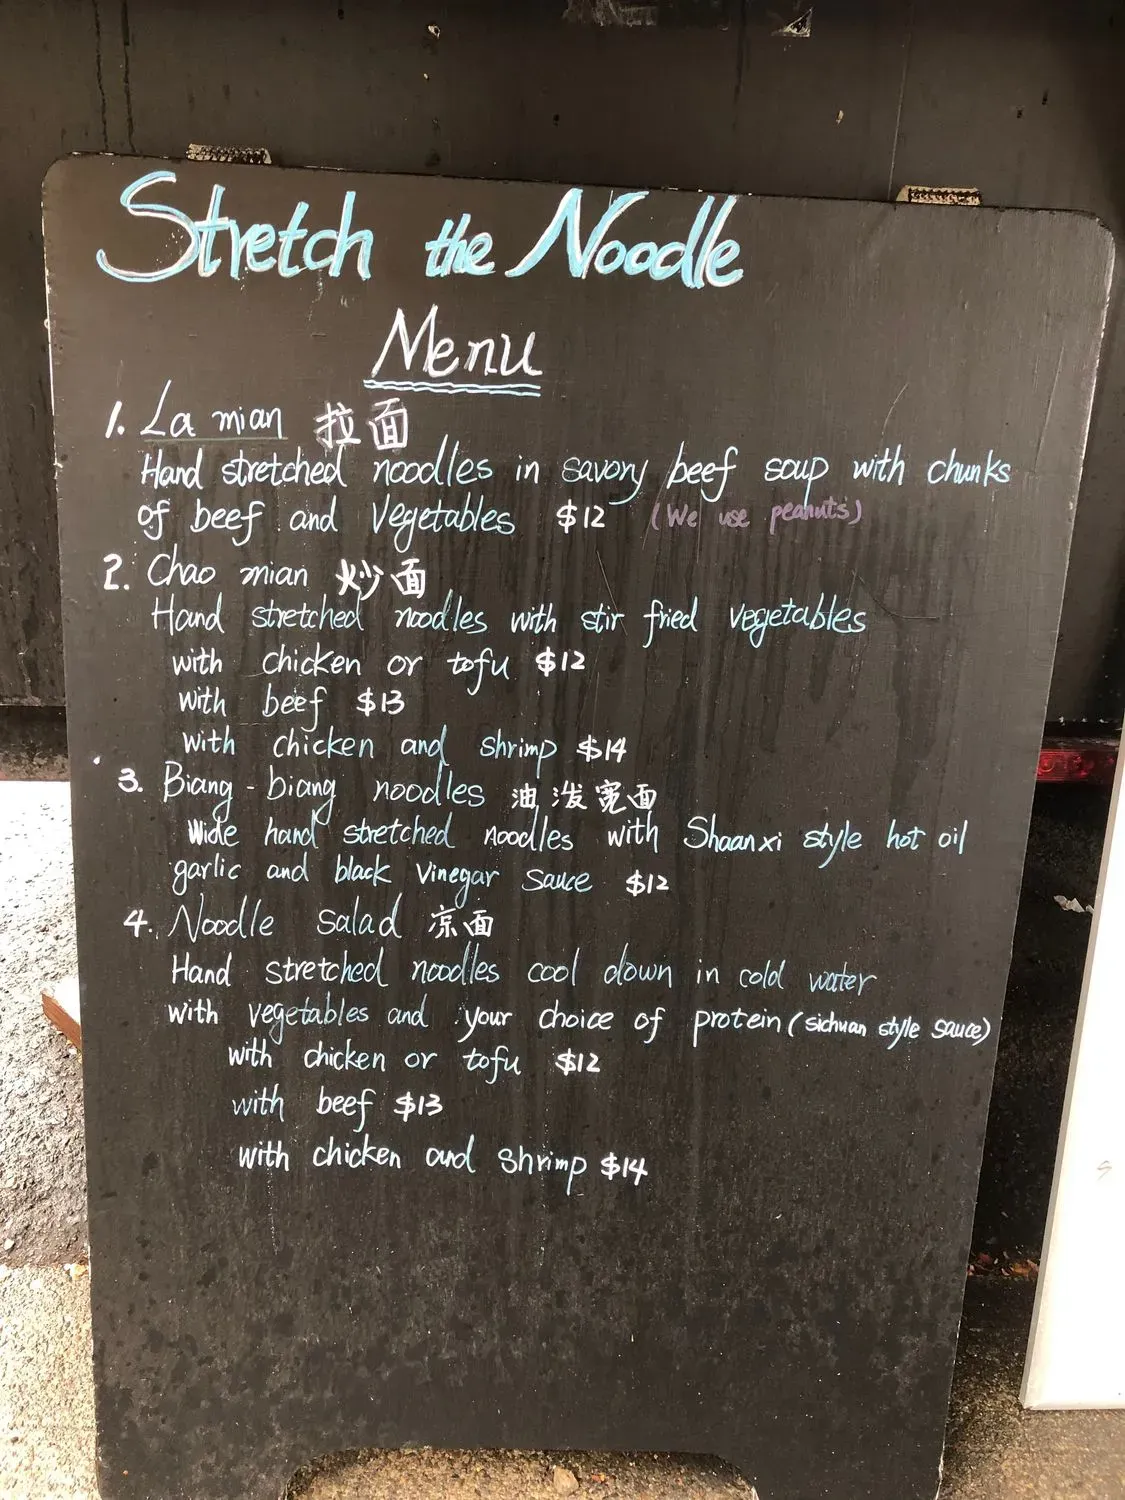 Stretch the Noodle
Menu
1. La mian 拉面
Hand stretched noodles in savory beef soup with chunks
of beef and vegetables $12 (We use peanuts)
2. Chao mian 炒面
Hand stretched noodles with stir fried vegetables
with chicken or tofu $12
with beef $13
with chicken and shrimp $14
3. Biang-biang noodles 油泼宽面
Wide hand stretched noodles with Shaanxi style hot oil
garlic and black vinegar sauce $12
4. Noodle salad 凉面
Hand stretched noodles cool down in cold water
with vegetables and your choice of protein (sichuan style sauce)
with chicken or tofu $12
with beef $13
with chicken and shrimp $14